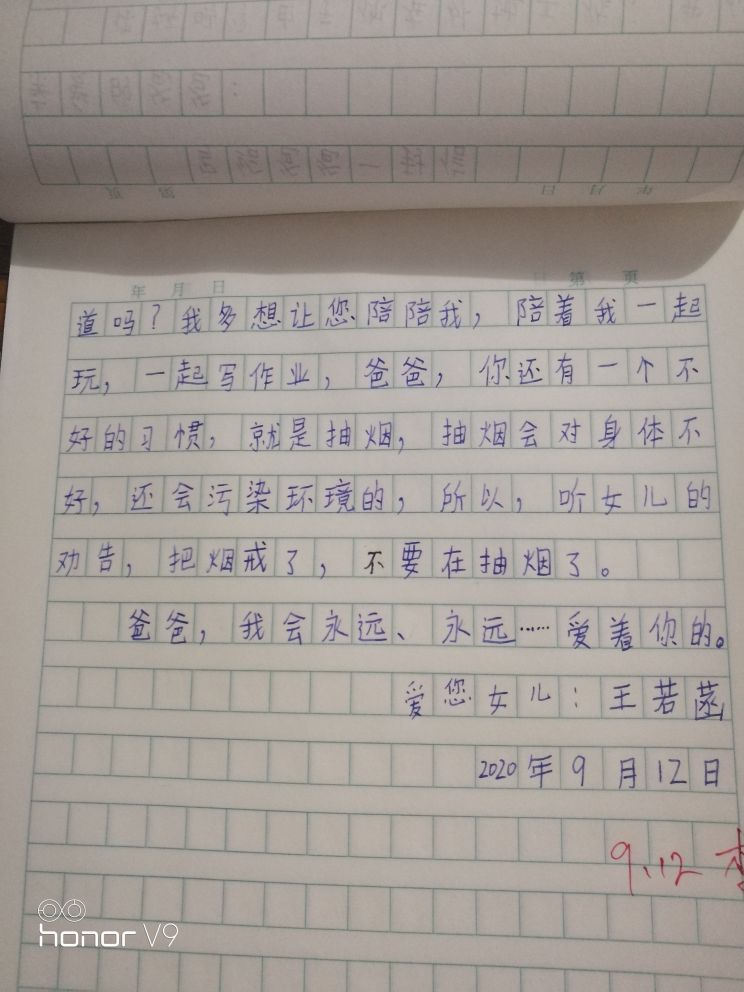 年 月 日 第 页
道吗？我多想让您陪陪我，陪着我一起
玩，一起写作业，爸爸，你还有一个不
好的习惯，就是抽烟，抽烟会对身体不
好，还会污染环境的，所以，听女儿的
劝告，把烟戒了，不要在抽烟了。
爸爸，我会永远、永远……爱着你的。
爱您女儿：王若菡
2020年9月12日
9.12 李
honor V9